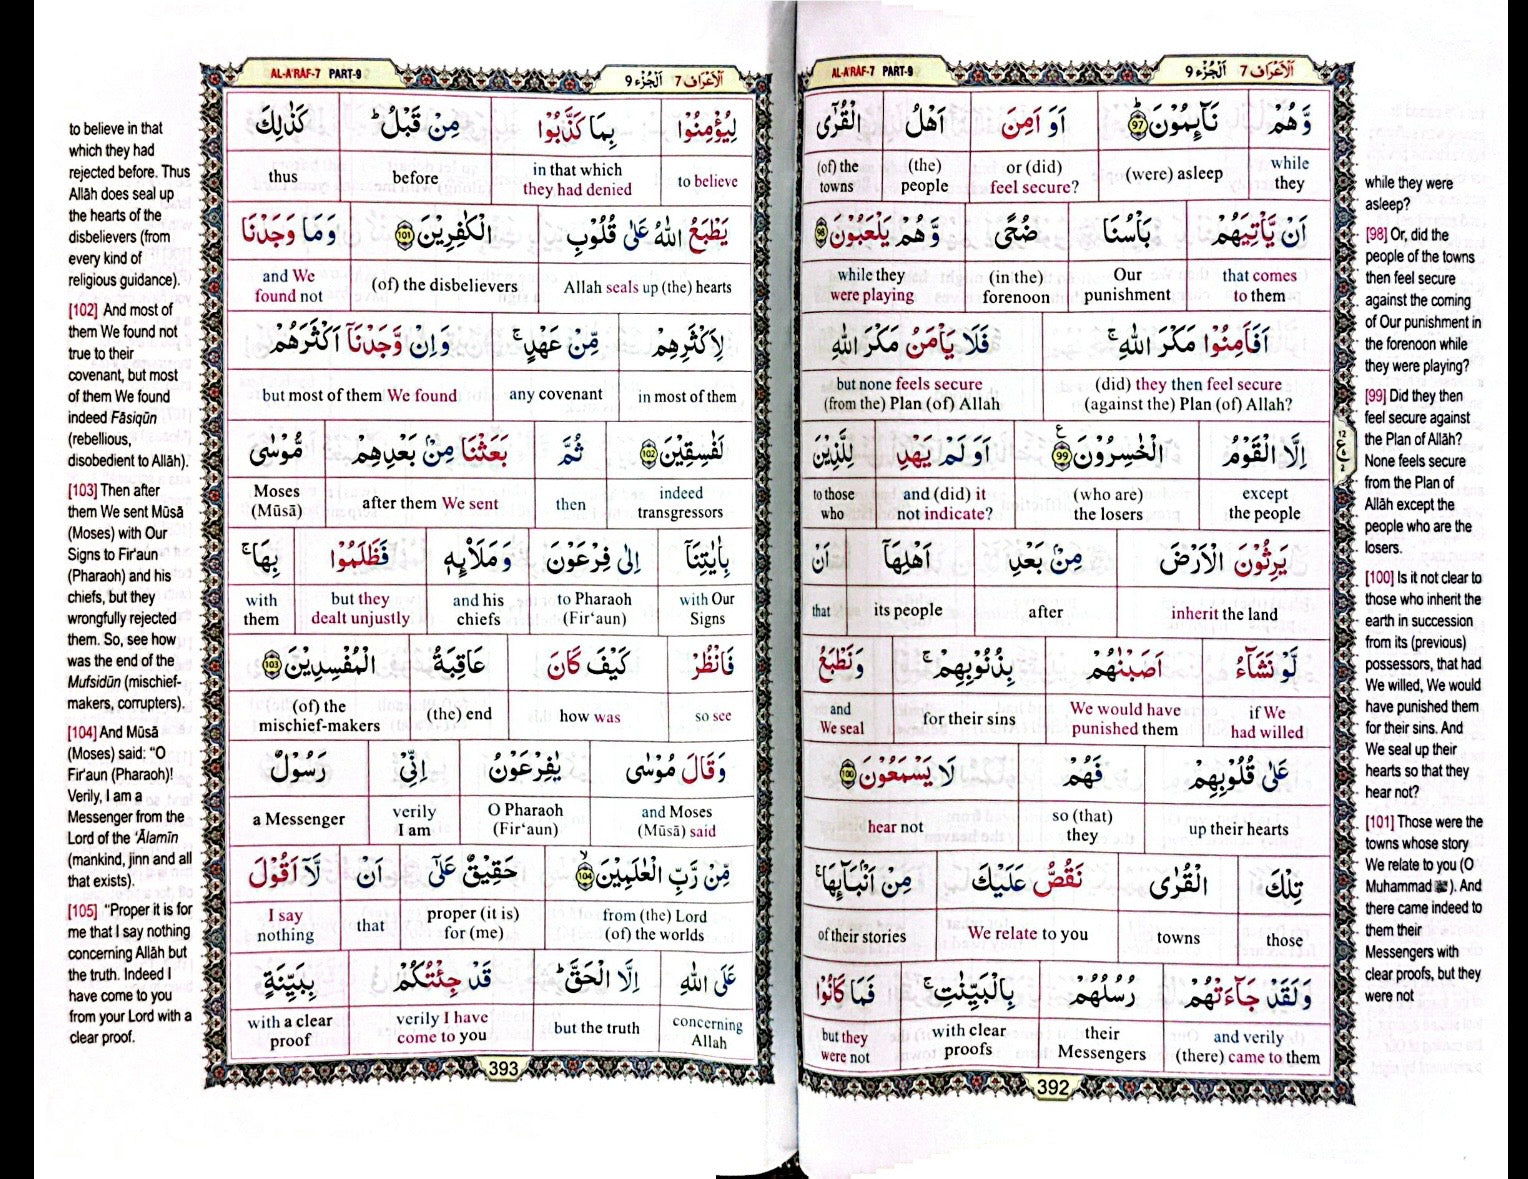 AL-A'RÂF-7 PART-9
اَلْاَعْرَاف 7 اَلْجُزْء 9
وَّهُمْ نَآىِٕمُوْنَ ؕ 97 اَوَ اَمِنَ اَهْلُ الْقُرٰٓى
while they (were) asleep or (did) feel secure? (the) people (of) the towns
اَنْ يَّاْتِيَهُمْ بَاْسُنَا ضُحًى وَّهُمْ يَلْعَبُوْنَ 98
that comes to them Our punishment (in the) forenoon while they were playing
اَفَاَمِنُوْا مَكْرَ اللّٰهِ ۚ فَلَا يَاْمَنُ مَكْرَ اللّٰهِ
(did) they then feel secure (against the) Plan (of) Allah? but none feels secure (from the) Plan (of) Allah
اِلَّا الْقَوْمُ الْخٰسِرُوْنَ 99 ع اَوَ لَمْ يَهْدِ لِلَّذِيْنَ
except the people (who are) the losers and (did) it not indicate? to those who
يَرِثُوْنَ الْاَرْضَ مِنْۢ بَعْدِ اَهْلِهَاۤ اَنْ
inherit the land after its people that
لَّوْ نَشَآءُ اَصَبْنٰهُمْ بِذُنُوْبِهِمْ ۚ وَنَطْبَعُ
if We had willed We would have punished them for their sins and We seal
عَلٰى قُلُوْبِهِمْ فَهُمْ لَا يَسْمَعُوْنَ 100
up their hearts so (that) they hear not
تِلْكَ الْقُرٰى نَقُصُّ عَلَيْكَ مِنْ اَنْۢبَآىِٕهَا ۚ
those towns We relate to you of their stories
وَلَقَدْ جَآءَتْهُمْ رُسُلُهُمْ بِالْبَيِّنٰتِ ۚ فَمَا كَانُوْا
and verily (there) came to them their Messengers with clear proofs but they were not
392
while they were
asleep?
[98] Or, did the
people of the towns
then feel secure
against the coming
of Our punishment in
the forenoon while
they were playing?
[99] Did they then
feel secure against
the Plan of Allâh?
None feels secure
from the Plan of
Allâh except the
people who are the
losers.
[100] Is it not clear to
those who inherit the
earth in succession
from its (previous)
possessors, that had
We willed, We would
have punished them
for their sins. And
We seal up their
hearts so that they
hear not?
[101] Those were the
towns whose story
We relate to you (O
Muhammad ﷺ). And
there came indeed to
them their
Messengers with
clear proofs, but they
were not
AL-A'RÂF-7 PART-9
اَلْاَعْرَاف 7 اَلْجُزْء 9
لِيُؤْمِنُوْا بِمَا كَذَّبُوْا مِنْ قَبْلُ ؕ كَذٰلِكَ
to believe in that which they had denied before thus
يَطْبَعُ اللّٰهُ عَلٰى قُلُوْبِ الْكٰفِرِيْنَ 101 وَمَا وَجَدْنَا
Allah seals up (the) hearts (of) the disbelievers and We found not
لِاَكْثَرِهِمْ مِّنْ عَهْدٍ ۚ وَاِنْ وَّجَدْنَاۤ اَكْثَرَهُمْ
in most of them any covenant but most of them We found
لَفٰسِقِيْنَ 102 ثُمَّ بَعَثْنَا مِنْۢ بَعْدِهِمْ مُّوْسٰى
indeed transgressors then after them We sent Moses (Mūsā)
بِاٰيٰتِنَاۤ اِلٰى فِرْعَوْنَ وَمَلَا۟ىِٕهٖ فَظَلَمُوْا بِهَا ۚ
with Our Signs to Pharaoh (Fir‘aun) and his chiefs but they dealt unjustly with them
فَانْظُرْ كَيْفَ كَانَ عَاقِبَةُ الْمُفْسِدِيْنَ 103
so see how was (the) end (of) the mischief-makers
وَقَالَ مُوْسٰى يٰفِرْعَوْنُ اِنِّيْ رَسُوْلٌ
and Moses (Mūsā) said O Pharaoh (Fir‘aun) verily I am a Messenger
مِّنْ رَّبِّ الْعٰلَمِيْنَ 104 ۙ حَقِيْقٌ عَلٰۤى اَنْ لَّاۤ اَقُوْلَ
from (the) Lord (of) the worlds proper (it is) for (me) that I say nothing
عَلَى اللّٰهِ اِلَّا الْحَقَّ ؕ قَدْ جِئْتُكُمْ بِبَيِّنَةٍ
concerning Allah but the truth verily I have come to you with a clear proof
393
to believe in that
which they had
rejected before. Thus
Allâh does seal up
the hearts of the
disbelievers (from
every kind of
religious guidance).
[102] And most of
them We found not
true to their
covenant, but most
of them We found
indeed Fâsiqûn
(rebellious,
disobedient to Allâh).
[103] Then after
them We sent Mûsâ
(Moses) with Our
Signs to Fir'aun
(Pharaoh) and his
chiefs, but they
wrongfully rejected
them. So, see how
was the end of the
Mufsidûn (mischief-
makers, corrupters).
[104] And Mûsâ
(Moses) said: “O
Fir'aun (Pharaoh)!
Verily, I am a
Messenger from the
Lord of the ‘Âlamîn
(mankind, jinn and all
that exists).
[105] “Proper it is for
me that I say nothing
concerning Allâh but
the truth. Indeed I
have come to you
from your Lord with a
clear proof.